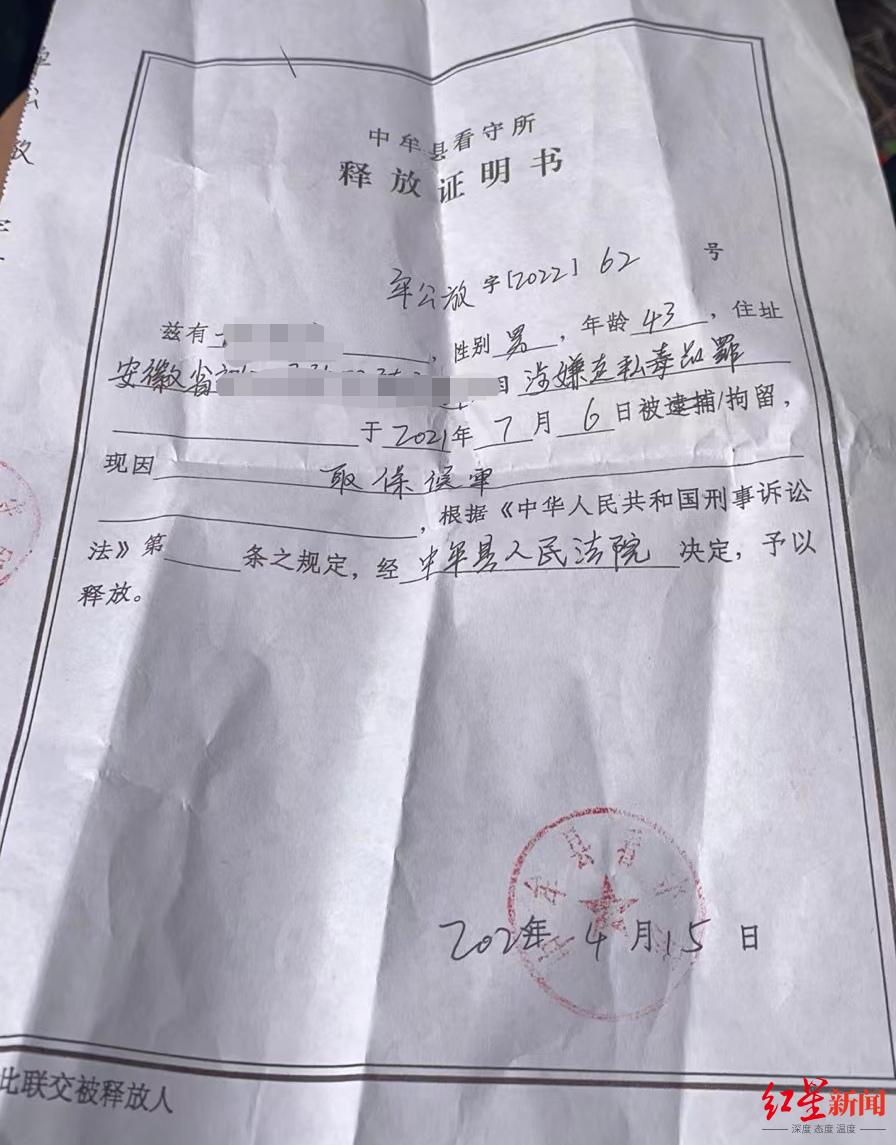 中牟县看守所
释放证明书
牟公放字[2022]62号
兹有，性别男，年龄43，住址
安徽省 因涉嫌走私毒品罪
于2021年7月6日被逮捕/拘留，
现因取保候审
，根据《中华人民共和国刑事诉讼
法》第 条之规定，经中牟县人民法院决定，予以
释放。
中牟县看守所
202年4月15日
此联交被释放人
红星新闻
深度 态度 温度